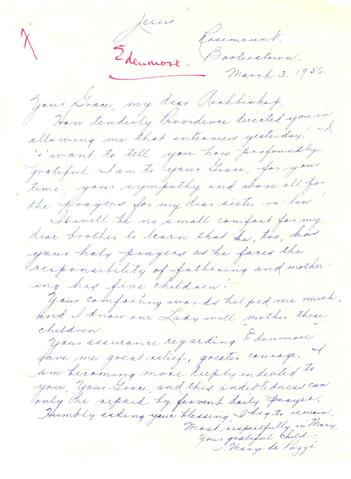 Jesus!
Rosemount.
Booterstown.
Edenmore.
March 3. 1956.
Your Grace, my dear Archbishop,
How tenderly Providence directed you in
allowing me that interview yesterday! I
want to tell you how profoundly
grateful I am to Your Grace, for your
time, your sympathy and above all for
the prayers for my dear sister-in-law.
It will be no small comfort for my
dear brother to learn that he, too, has
your holy prayers as he faces the
responsibility of fathering and mother
ing his five children!
Your comforting words helped me much,
and I know our Lady will mother these
children.
Your assurance regarding "Edenmore"
gave me great relief, greater courage. I
am becoming more deeply indebted to
you, Your Grace, and this indebtedness can
only be repaid by fervent daily prayer.
Humbly asking your blessing I beg to remain,
Most respectfully in Mary,
Your grateful child,
Mary de Pazzi